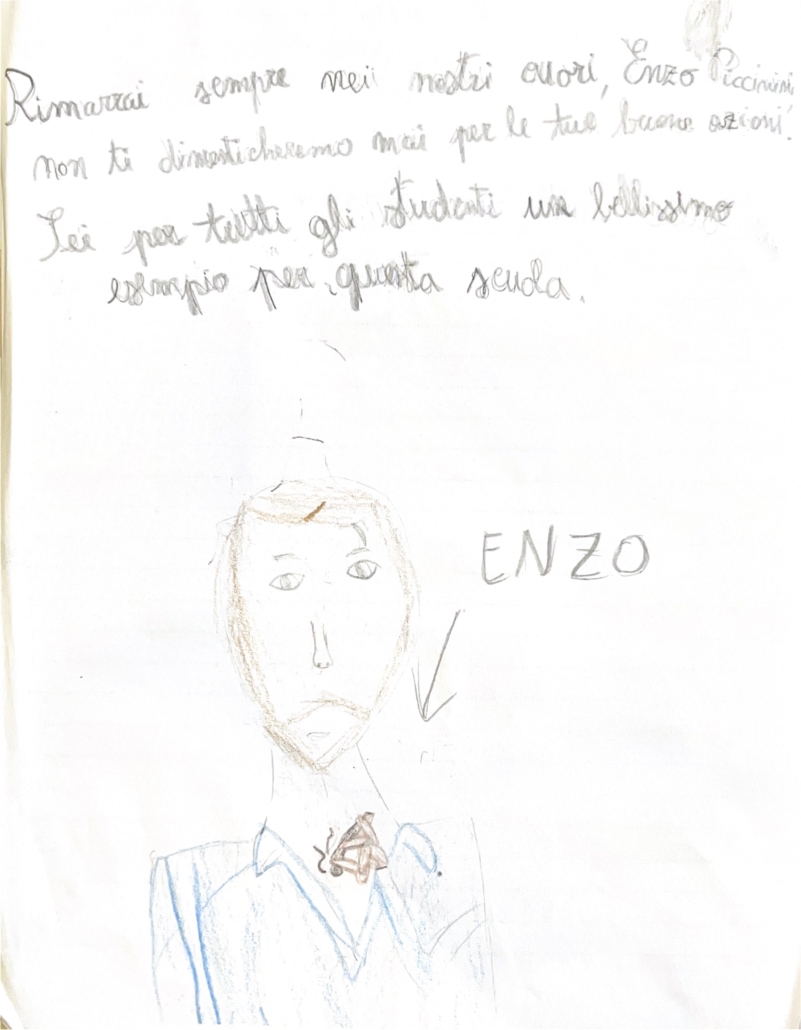 Rimarrai sempre nei nostri cuori, Enzo Piccinini
non ti dimenticheremo mai per le tue buone azioni.
Sei per tutti gli studenti un bellissimo
esempio per questa scuola.
ENZO